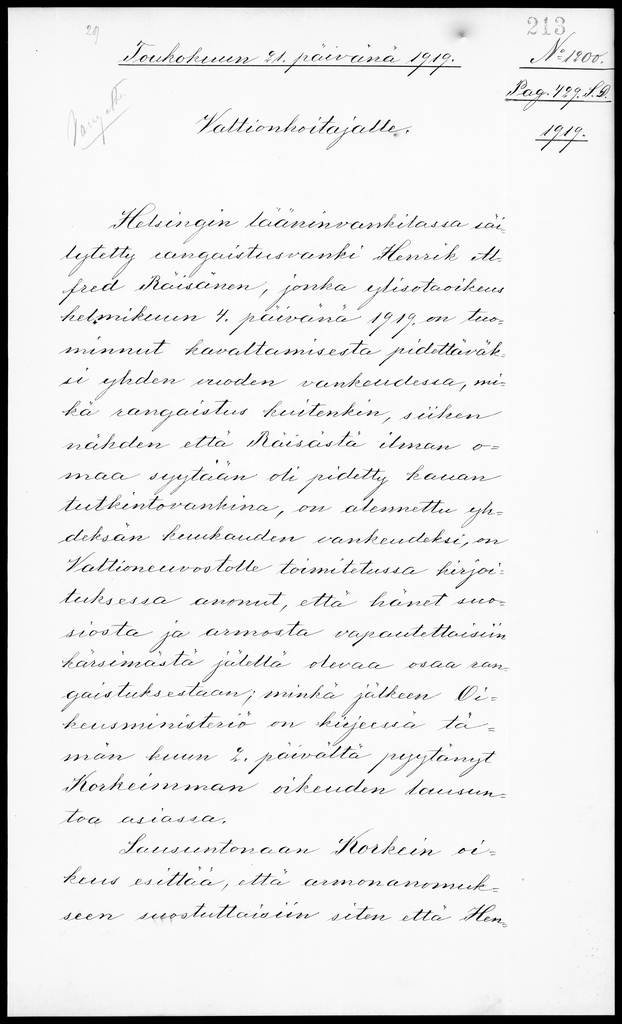 213
29
Toukokuun 21. päivänä 1919.
No 1200.
Pag. 429. S.D.
1919.
Valtionhoitajalle.
Helsingin lääninvankilassa säi=
lytetty rangaistusvanki Henrik Al=
fred Räisänen, jonka ylisotaoikeus
helmikuun 4. päivänä 1919 on tuo=
minnut kavaltamisesta pidettäväk=
si yhden vuoden vankeudessa, mi=
kä rangaistus kuitenkin, siihen
nähden että Räisästä ilman o=
maa syytään oli pidetty kauan
tutkintovankina, on alennettu yh=
deksän kuukauden vankeudeksi, on
Valtioneuvostolle toimitetussa kirjoi=
tuksessa anonut, että hänet suo=
siosta ja armosta vapautettaisiin
kärsimästä jälellä olevaa osaa ran=
gaistuksestaan; minkä jälkeen Oi=
keusministeriö on kirjeessä tä=
män kuun 2. päivältä pyytänyt
Korkeimman oikeuden lausun=
toa asiassa.
Lausuntonaan Korkein oi=
keus esittää, että armonanomuk=
seen suostuttaisiin siten että Hen=